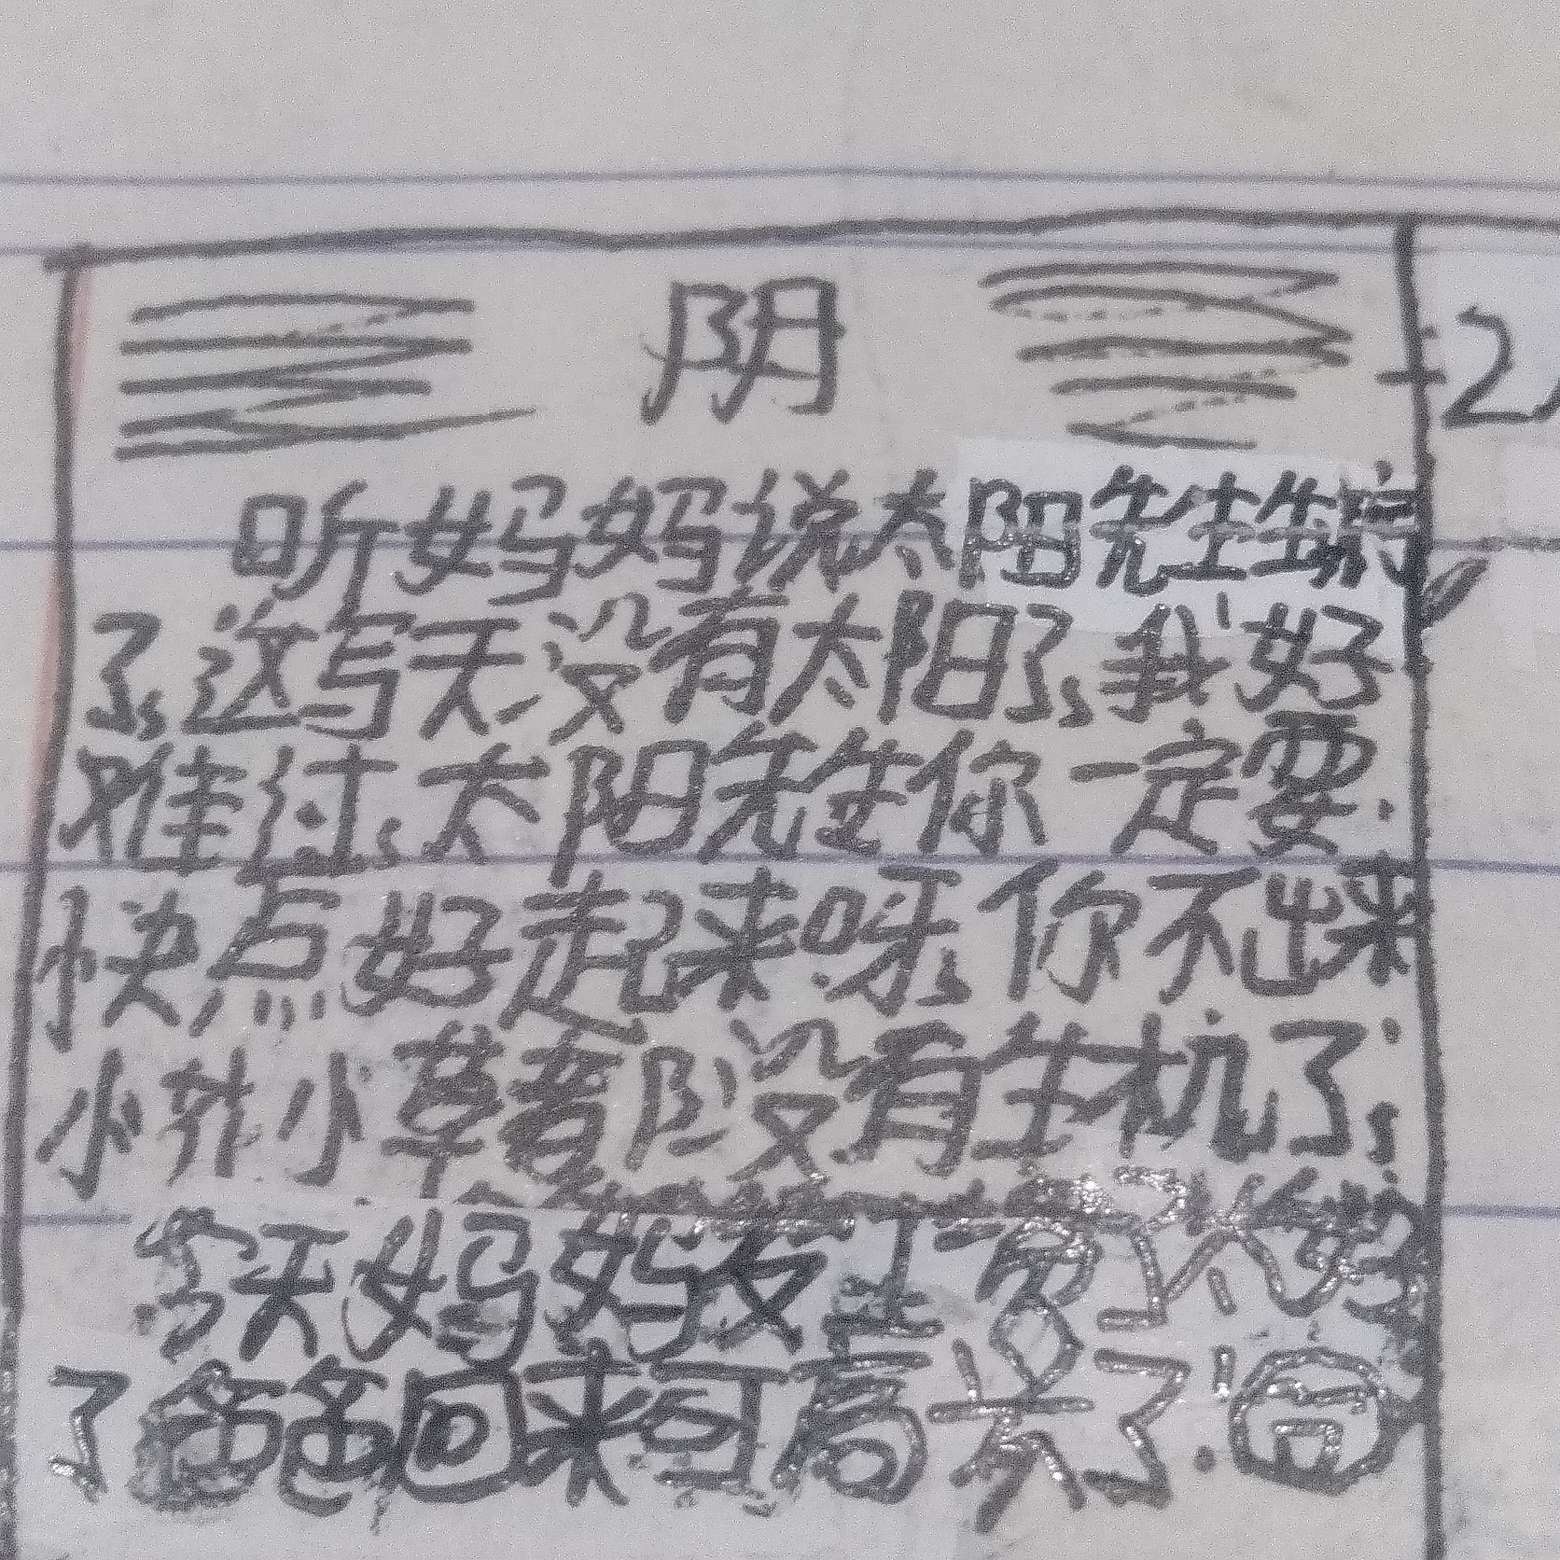 阴
2
听妈妈说太阳先生生病
了。这写天没有太阳了。我好
难过。太阳先生你一定要
快点好起来呀。你不出来
小花小草都没有生机了。
今天妈妈发工资了太好
了爸爸回来可高兴了.